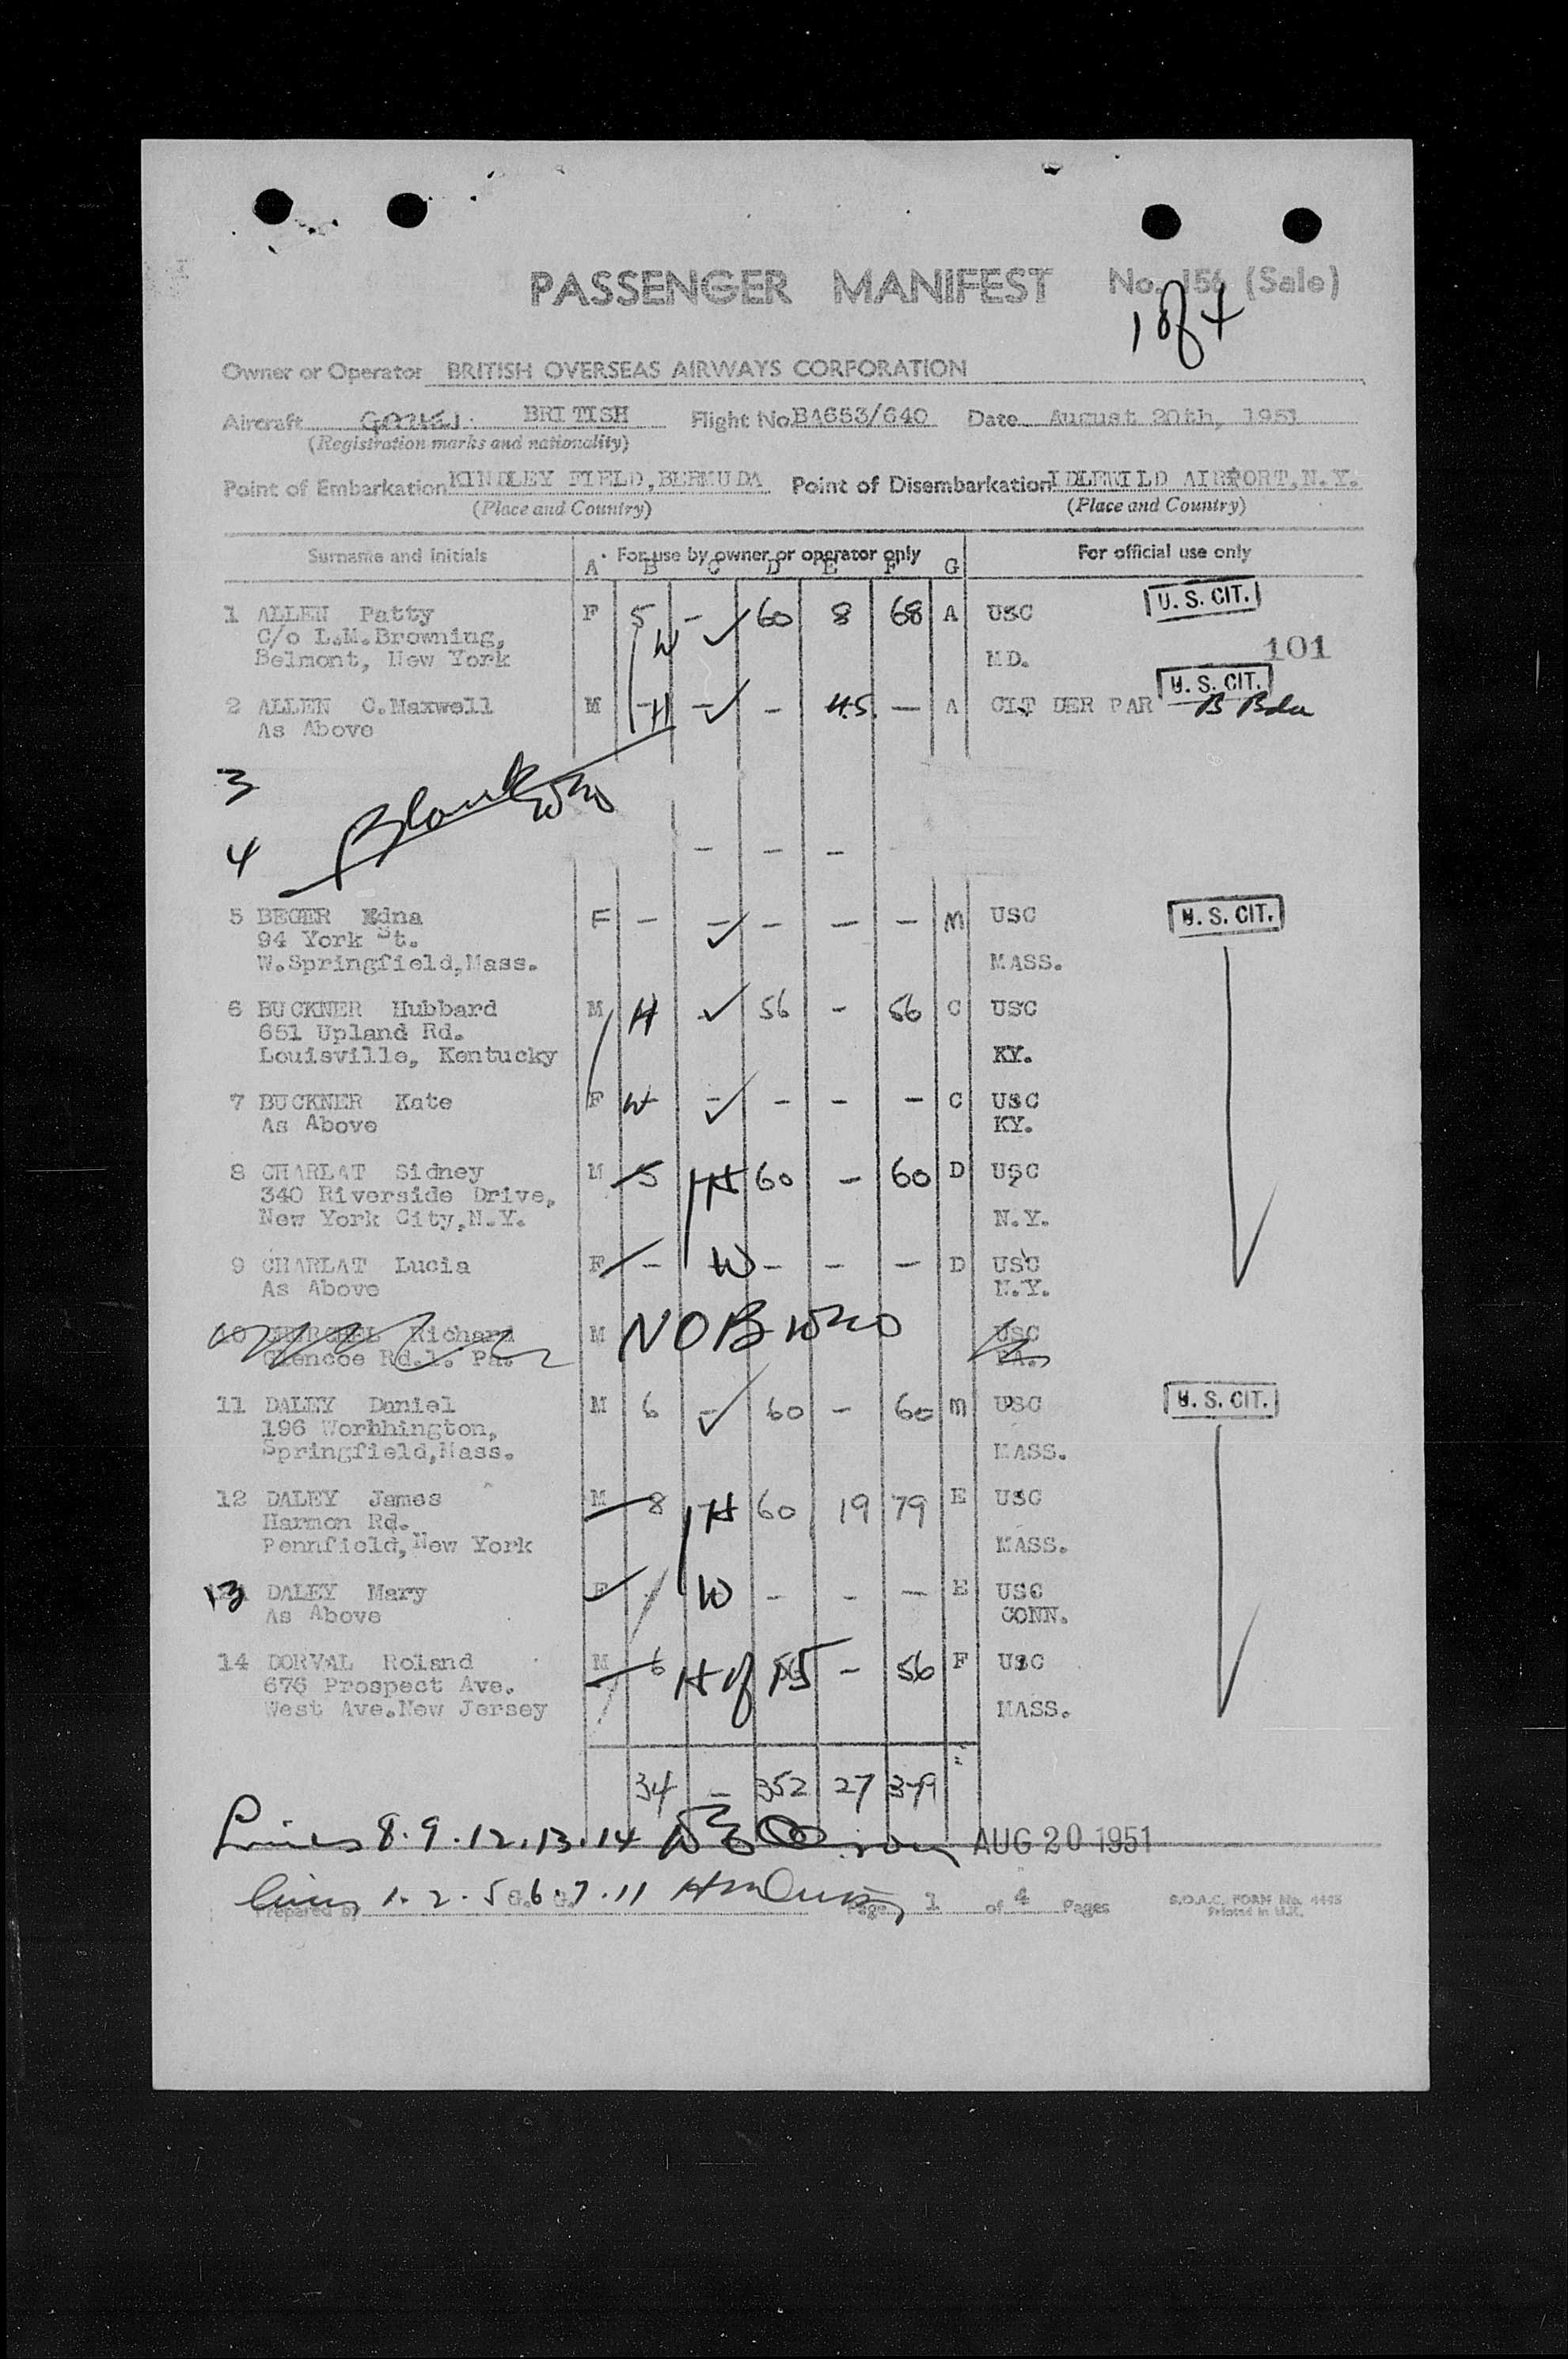 PASSENGER MANIFEST No. 156 (Sale)
1 of 4
Owner or Operator BRITISH OVERSEAS AIRWAYS CORPORATION
Aircraft BRITISH Flight No. BA653/640 Date August 20th, 1951
(Registration marks and nationality)
Point of Embarkation KINDLEY FIELD, BERMUDA Point of Disembarkation IDLEWILD AIRPORT, N.Y.
(Place and Country) (Place and Country)
Surname and initials For use by owner or operator only For official use only
A B C D E F G
1 ALLEN Patty F 5 - 60 8 68 A USC U. S. CIT.
C/o L.M.Browning, W
Belmont, New York MD. 101
U. S. CIT.
2 ALLEN C.Maxwell M - H - - 45 - A CIT DER PAR B Bda
As Above
3
Blank
4 - - -
5 BEGER Edna F - - - - - M USC U. S. CIT.
94 York St.
W.Springfield,Mass. MASS.
6 BUCKNER Hubbard M H - 56 - 56 C USC
651 Upland Rd.
Louisville, Kentucky KY.
7 BUCKNER Kate F W - - - - C USC
As Above KY.
8 CHARLAT Sidney M 5 H 60 - 60 D USC
340 Riverside Drive,
New York City,N.Y. N.Y.
9 CHARLAT Lucia F - W - - - D USC
As Above N.Y.
10 Richard M NOB USC
Glencoe Rd.1. Pa. PA.
11 DALEY Daniel M 6 - 60 - 60 M USC U. S. CIT.
196 Worhhington,
Springfield,Mass. MASS.
12 DALEY James M 8 H 60 19 79 E USC
Harmon Rd.
Pennfield,New York MASS.
13 DALEY Mary F - W - - - E USC
As Above CONN.
14 DORVAL Roland M 6 H of 15 - 56 F USC
676 Prospect Ave.
West Ave.New Jersey MASS.
34 - 352 27 379
Lines 8.9.12.13.14 AUG 20 1951
Lines 1.2.5.6.7.11
Prepared by Page 1 of 4 Pages
B.O.A.C. FORM No. 4445
Printed in U.K.